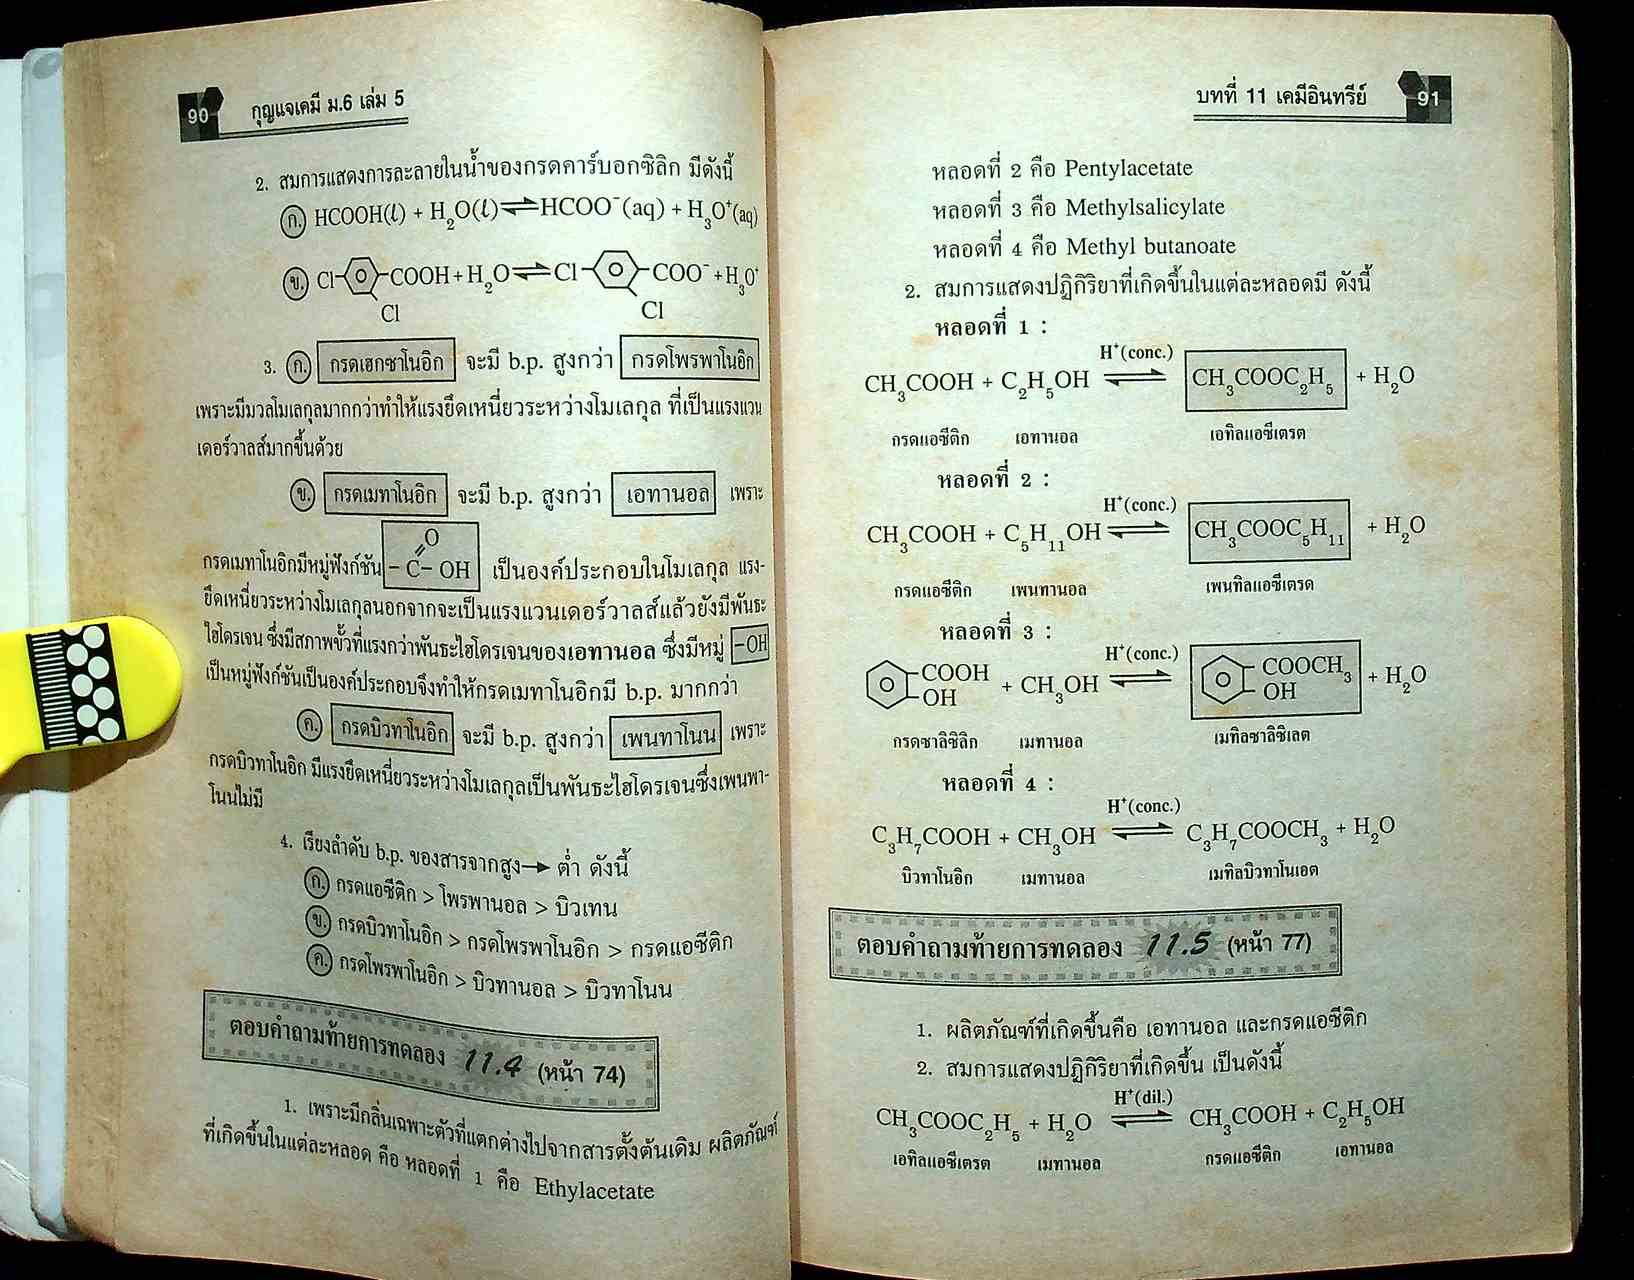 90 กุญแจเคมี ม.6 เล่ม 5
2. สมการแสดงการละลายในน้ำของกรดคาร์บอกซิลิก มีดังนี้
ก. HCOOH(l) + H₂O(l) ⇌ HCOO⁻(aq) + H₃O⁺(aq)
ข. Cl COOH + H₂O ⇌ Cl COO⁻ + H₃O⁺
Cl Cl
3. ก. กรดเฮกซาโนอิก จะมี b.p. สูงกว่า กรดโพรพาโนอิก
เพราะมีมวลโมเลกุลมากกว่าทำให้แรงยึดเหนี่ยวระหว่างโมเลกุล ที่เป็นแรงแวน
เดอร์วาลส์มากขึ้นด้วย
ข. กรดเมทาโนอิก จะมี b.p. สูงกว่า เอทานอล เพราะ
O
กรดเมทาโนอิกมีหมู่ฟังก์ชัน – C – OH เป็นองค์ประกอบในโมเลกุล แรง-
ยึดเหนี่ยวระหว่างโมเลกุลนอกจากจะเป็นแรงแวนเดอร์วาลส์แล้วยังมีพันธะ
ไฮโดรเจน ซึ่งมีสภาพขั้วที่แรงกว่าพันธะไฮโดรเจนของเอทานอล ซึ่งมีหมู่ –OH
เป็นหมู่ฟังก์ชันเป็นองค์ประกอบจึงทำให้กรดเมทาโนอิกมี b.p. มากกว่า
ค. กรดบิวทาโนอิก จะมี b.p. สูงกว่า เพนทาโนน เพราะ
กรดบิวทาโนอิก มีแรงยึดเหนี่ยวระหว่างโมเลกุลเป็นพันธะไฮโดรเจนซึ่งเพนพา-
โนนไม่มี
4. เรียงลำดับ b.p. ของสารจากสูง → ต่ำ ดังนี้
ก. กรดแอซีติก > โพรพานอล > บิวเทน
ข. กรดบิวทาโนอิก > กรดโพรพาโนอิก > กรดแอซีติก
ค. กรดโพรพาโนอิก > บิวทานอล > บิวทาโนน
ตอบคำถามท้ายการทดลอง 11.4 (หน้า 74)
1. เพราะมีกลิ่นเฉพาะตัวที่แตกต่างไปจากสารตั้งต้นเดิม ผลิตภัณฑ์
ที่เกิดขึ้นในแต่ละหลอด คือ หลอดที่ 1 คือ Ethylacetate
บทที่ 11 เคมีอินทรีย์ 91
หลอดที่ 2 คือ Pentylacetate
หลอดที่ 3 คือ Methylsalicylate
หลอดที่ 4 คือ Methyl butanoate
2. สมการแสดงปฏิกิริยาที่เกิดขึ้นในแต่ละหลอดมี ดังนี้
หลอดที่ 1 :
H⁺(conc.)
CH₃COOH + C₂H₅OH ⇌ CH₃COOC₂H₅ + H₂O
กรดแอซีติก เอทานอล เอทิลแอซีเตรต
หลอดที่ 2 :
H⁺(conc.)
CH₃COOH + C₅H₁₁OH ⇌ CH₃COOC₅H₁₁ + H₂O
กรดแอซีติก เพนทานอล เพนทิลแอซีเตรด
หลอดที่ 3 :
H⁺(conc.)
COOH COOCH₃
OH + CH₃OH ⇌ OH + H₂O
กรดซาลิซิลิก เมทานอล เมทิลซาลิซิเลต
หลอดที่ 4 :
H⁺(conc.)
C₃H₇COOH + CH₃OH ⇌ C₃H₇COOCH₃ + H₂O
บิวทาโนอิก เมทานอล เมทิลบิวทาโนเอต
ตอบคำถามท้ายการทดลอง 11.5 (หน้า 77)
1. ผลิตภัณฑ์ที่เกิดขึ้นคือ เอทานอล และกรดแอซีติก
2. สมการแสดงปฏิกิริยาที่เกิดขึ้น เป็นดังนี้
H⁺(dil.)
CH₃COOC₂H₅ + H₂O ⇌ CH₃COOH + C₂H₅OH
เอทิลแอซีเตรต เมทานอล กรดแอซีติก เอทานอล